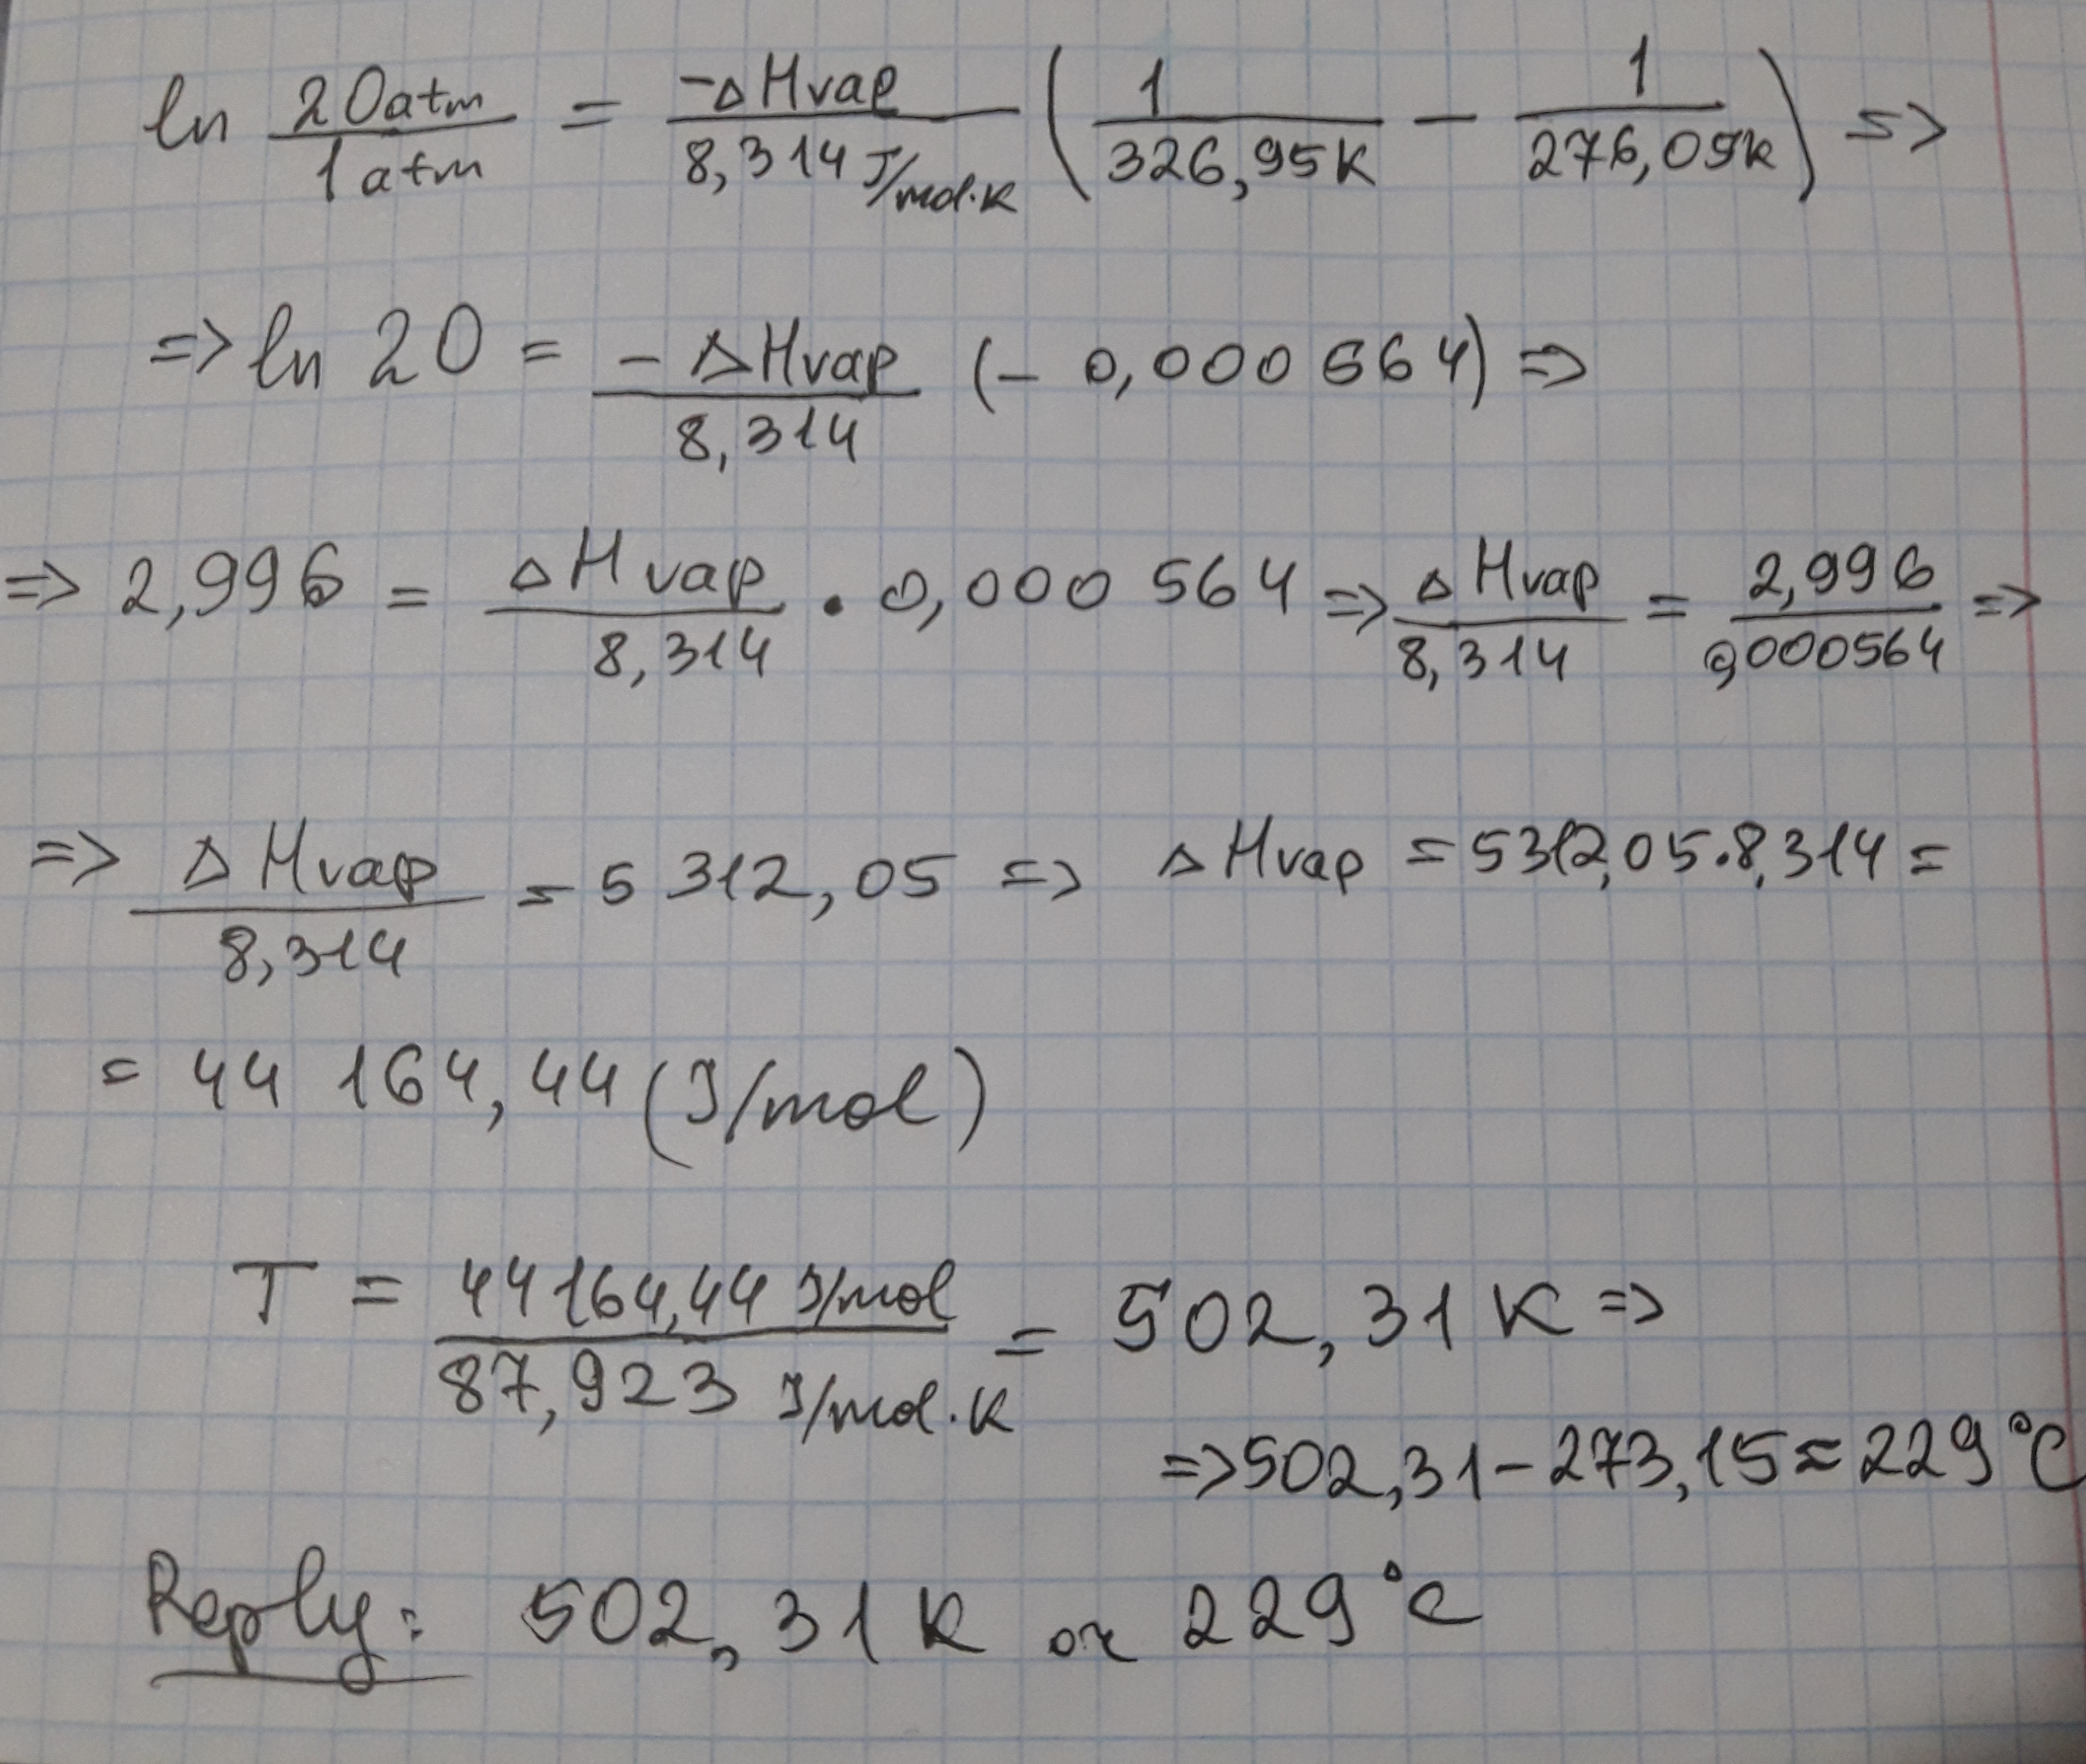 ln 20atm/1atm = -ΔHvap/8,314 J/mol.K (1/326,95K - 1/276,09K) =>
=> ln 20 = -ΔHvap/8,314 (-0,000564) =>
=> 2,996 = ΔHvap/8,314 . 0,000564 => ΔHvap/8,314 = 2,996/0,000564 =>
=> ΔHvap/8,314 = 5312,05 => ΔHvap = 5312,05.8,314 =
= 44 164,44 (J/mol)
T = 44164,44 J/mol / 87,923 J/mol.K = 502,31 K =>
=> 502,31 - 273,15 = 229°C
Reply: 502,31 K or 229°C